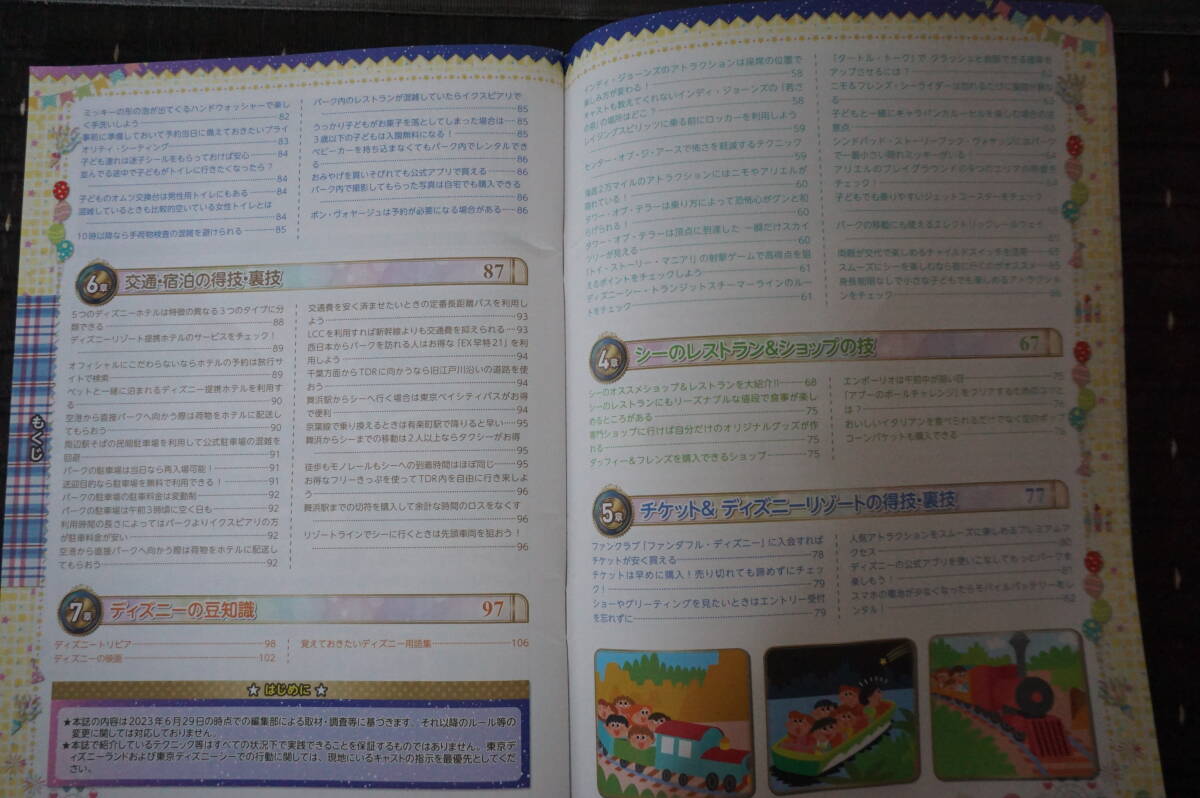 ミッキーの形の泡が出てくるハンドウォッシャーで楽し
く手洗いしよう 82
事前に準備しておいて予約当日に備えておきたいプライ
オリティ・シーティング 83
子ども連れは迷子シールをもらっておけば安心 84
並んでる途中で子どもがトイレに行きたくなったら?
84
子どものオムツ交換台は男性用トイレにもある 84
混雑しているときも比較的空いている女性トイレとは
84
10時以降なら手荷物検査の混雑を避けられる 85
パーク内のレストランが混雑していたらイクスピアリで
85
うっかり子どもがお菓子を落としてしまった場合は 85
3歳以下の子どもは入園無料になる! 85
ベビーカーを持ち込まなくてもパーク内でレンタルでき
る 86
おみやげを買いそびれても公式アプリで買える 86
パーク内で撮影してもらった写真は自宅でも購入できる
86
ボン・ヴォヤージュは予約が必要になる場合がある 86
もくじ
6章 交通・宿泊の得技・裏技 87
5つのディズニーホテルは特徴の異なる3つのタイプに分
類できる 88
ディズニーリゾート提携ホテルのサービスをチェック!
89
オフィシャルにこだわらないならホテルの予約は旅行サ
イトで検索 89
ペットと一緒に泊まれるディズニー提携ホテルを利用す
る 90
空港から直接パークへ向かう際は荷物をホテルに配送し
てもらおう 90
周辺駅そばの民間駐車場を利用して公式駐車場の混雑を
回避 91
パークの駐車場は当日なら再入場可能! 91
送迎目的なら駐車場を無料で利用できる! 91
パークの駐車場の駐車料金は変動制 92
パークの駐車場は午前3時頃に空く日も 92
利用時間の長さによってはパークよりイクスピアリの方
が駐車料金が安い 92
空港から直接パークへ向かう際は荷物をホテルに配送し
てもらおう 92
交通費を安く済ませたいときの定番長距離バスを利用し
よう 93
LCCを利用すれば新幹線よりも交通費を抑えられる 93
西日本からパークを訪れる人はお得な「EX早特21」を利
用しよう 94
千葉方面からTDRに向かうなら旧江戸川沿いの道路を使
おう 94
舞浜駅からシーへ行く場合は東京ベイシティバスがお得
で便利 94
京葉線で乗り換えるときは有楽町駅で降りると早い 95
舞浜からシーまでの移動は2人以上ならタクシーがお得
95
徒歩もモノレールもシーへの到着時間はほぼ同じ 95
お得なフリーきっぷを使ってTDR内を自由に行き来しよ
う 96
舞浜駅までの切符を購入して余計な時間のロスをなくす
96
リゾートラインでシーに行くときは先頭車両を狙おう!
96
7章 ディズニーの豆知識 97
ディズニートリビア 98
ディズニーの映画 102
覚えておきたいディズニー用語集 106
★はじめに★
★本誌の内容は2023年6月29日の時点での編集部による取材・調査等に基づきます。それ以降のルール等の
変更に関しては対応しておりません。
★本誌で紹介しているテクニック等はすべての状況下で実践できることを保証するものではありません。東京デ
ィズニーランドおよび東京ディズニーシーでの行動に関しては、現地にいるキャストの指示を最優先としてくだ
さい。
インディ・ジョーンズのアトラクションは座席の位置で
楽しみ方が変わる! 58
キャストも教えてくれないインディ・ジョーンズの「若さ
の泉」の場所はどこ? 58
レイジングスピリッツに乗る前にロッカーを利用しよう
59
センター・オブ・ジ・アースで怖さを軽減するテクニック
59
海底2万マイルのアトラクションにはニモやアリエルが
隠れている! 60
タワー・オブ・テラーは乗り方によって恐怖心がグンと和
らげられる! 60
タワー・オブ・テラーは頂点に到達した一瞬だけスカイ
ツリーが見える 60
「トイ・ストーリー・マニア!」の射撃ゲームで高得点を狙
えるポイントをチェックしよう 61
ディズニーシー・トランジットスチーマーラインのルー
トをチェック 61
「タートル・トーク」でクラッシュと会話できる確率を
アップさせるには?
ニモ&フレンズ・シーライダーは訪れるたびに展開が異な
る
子どもと一緒にキャラバンカルーセルを楽しむ場合の注
意点
シンドバッド・ストーリーブック・ヴォヤッジにはパーク
で一番小さい隠れミッキーがいる! 64
アリエルのプレイグラウンドの9つのエリアの特徴を
チェック!
子どもでも乗りやすいジェットコースターをチェック
パークの移動にも使えるエレクトリックレールウェイ
両親が交代で楽しめるチャイルドスイッチを活用 65
スムーズにシーを楽しむなら
身長制限なしで小さな子どもでも楽しめるアトラクショ
ンをチェック 66
4章 シーのレストラン&ショップの技 67
シーのオススメショップ&レストランを大紹介!! 68
シーのレストランにもリーズナブルな値段で食事が楽し
めるところがある 75
専門ショップに行けば自分だけのオリジナルグッズが作
れる 75
ダッフィー&フレンズを購入できるショップ 75
エンポーリオは午前中が狙い目 75
「アブーのボールチャレンジ」をクリアするためのコツと
は? 76
おいしいイタリアンを食べられるだけでなく空のポップ
コーンバケットも購入できる 76
5章 チケット&ディズニーリゾートの得技・裏技 77
ファンクラブ「ファンダフル・ディズニー」に入会すれば
チケットが安く買える 78
チケットは早めに購入!売り切れても諦めずにチェッ
ク! 79
ショーやグリーティングを見たいときはエントリー受付
を忘れずに 79
人気アトラクションをスムーズに楽しめるプレミアムア
クセス 80
ディズニーの公式アプリを使いこなしてもっとパークを
楽しもう! 81
スマホの電池が少なくなったらモバイルバッテリーをレ
ンタル! 82